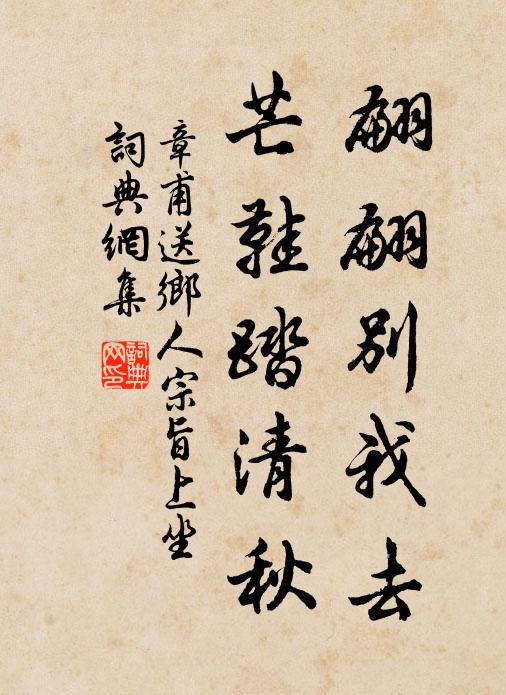 翩翩別我去
芒鞋踏清秋
章甫送鄉人宗旨上坐
詞典網集
詞典網印